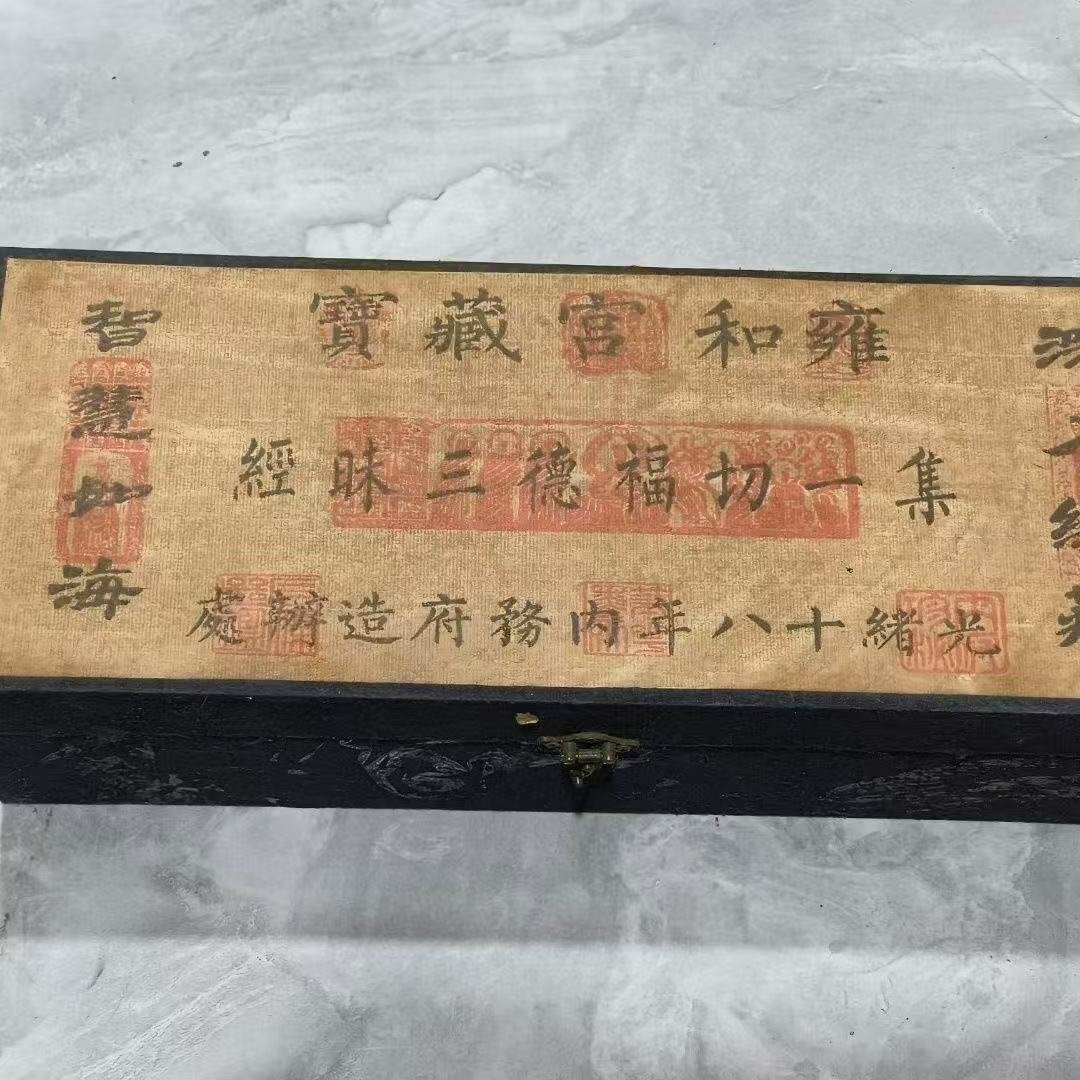 深入經藏
雍和宮藏寶
集一切福德三昧經
光緒十八年内務府造辦處
智慧如海